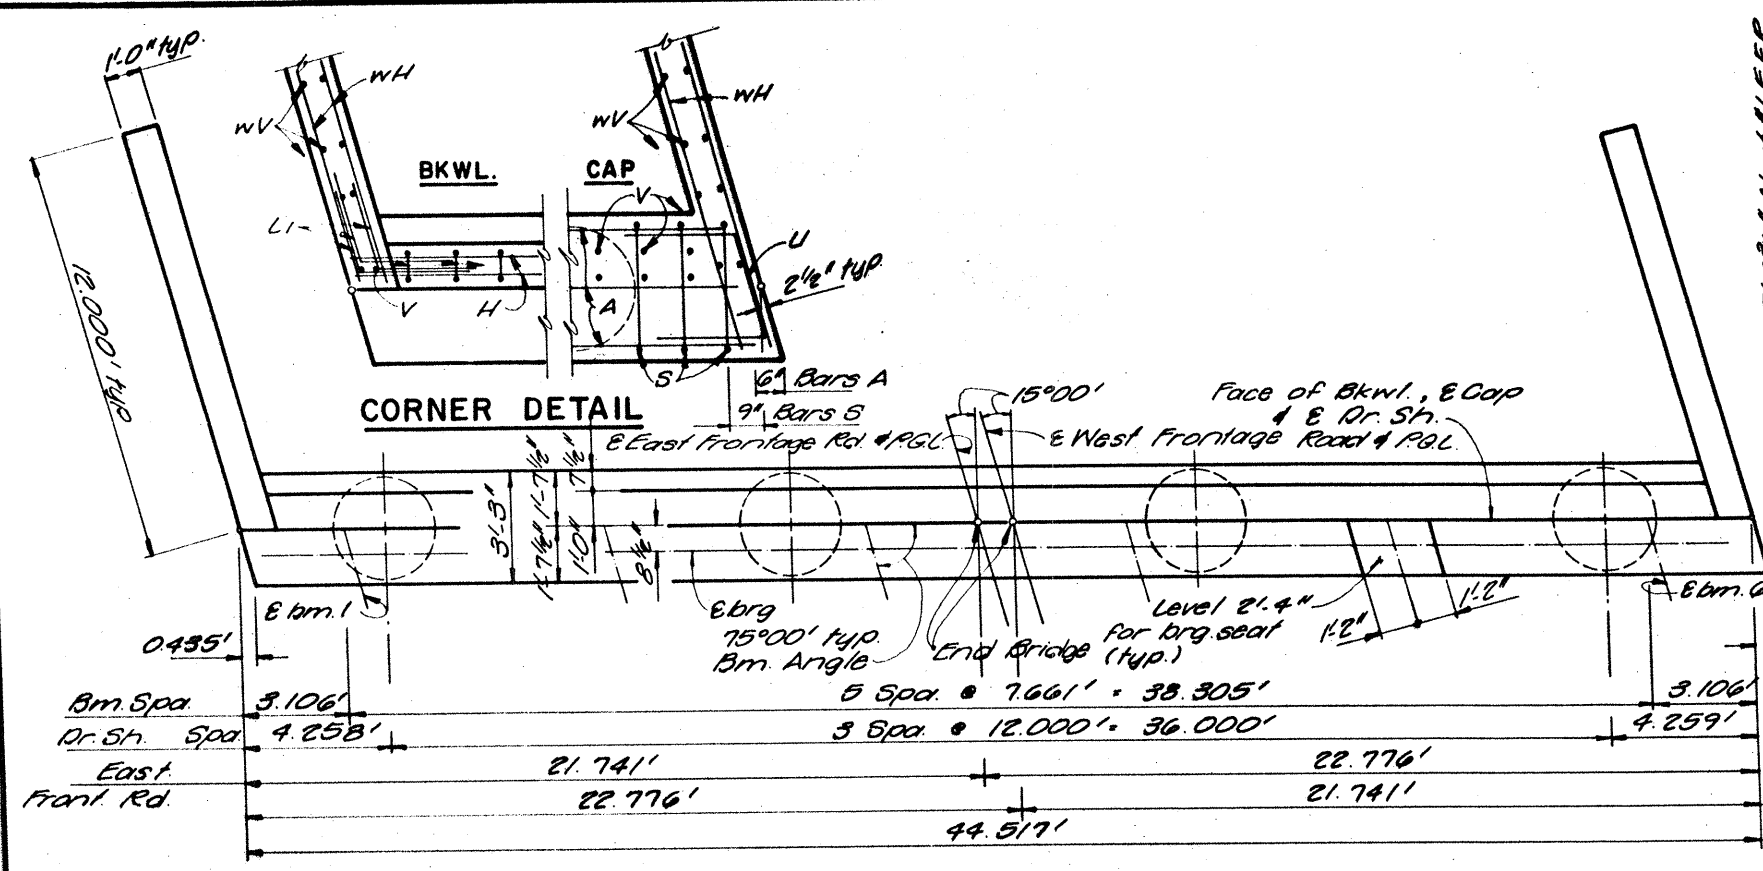 1'-0" typ.
wH
wV
wH
wV
BKWL.
CAP
V
L1
U
2½" typ.
V
H
A
S
6" Bars A
9" Bars S
CORNER DETAIL
12.000' typ.
15°00'
Face of Bkwl., ℄ Cap
& ℄ Dr. Sh.
℄ East Frontage Rd. & P.G.L.
℄ West Frontage Road & P.G.L.
3'-3"
1'-7½" 1'-7½"
7½"
1'-0"
8½"
℄ bm. 1
℄ brg
75°00' typ.
Bm. Angle
End Bridge
Level 2'-4"
for brg. seat
(typ.)
1'-2"
1'-2"
℄ bm. 6
0.435'
Bm. Spa. 3.106' 5 Spa. @ 7.661' = 38.305' 3.106'
Dr. Sh. Spa. 4.258' 3 Spa. @ 12.000' = 36.000' 4.259'
East. 21.741' 22.776'
Front. Rd. 22.776' 21.741'
44.517'